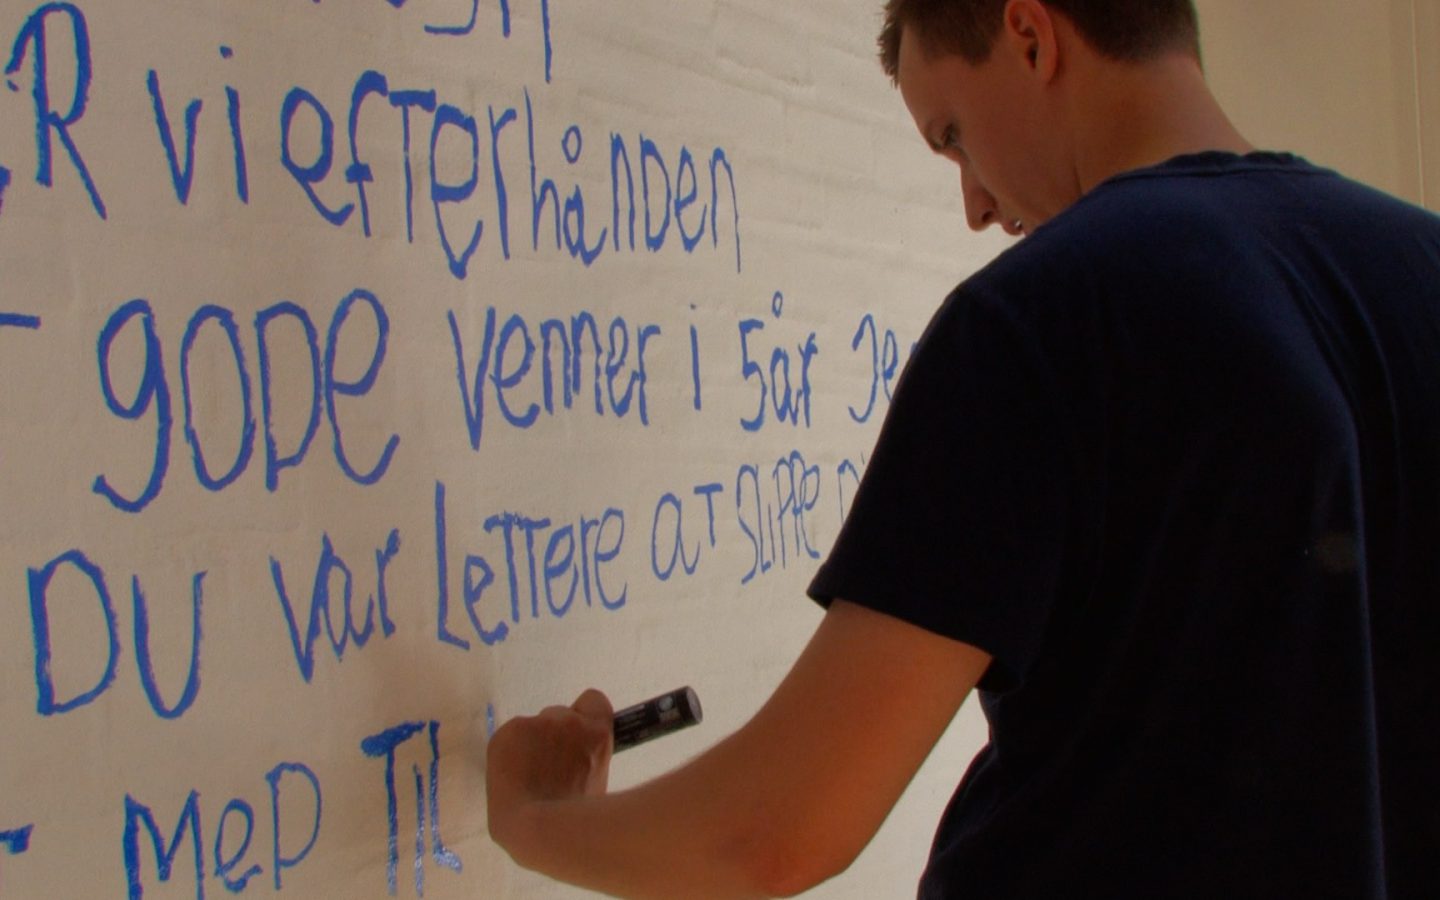 R vi efTerhånden
gODe venner i 5 år Je
DU var LeTTere aT SLiPPe
MeD TiL